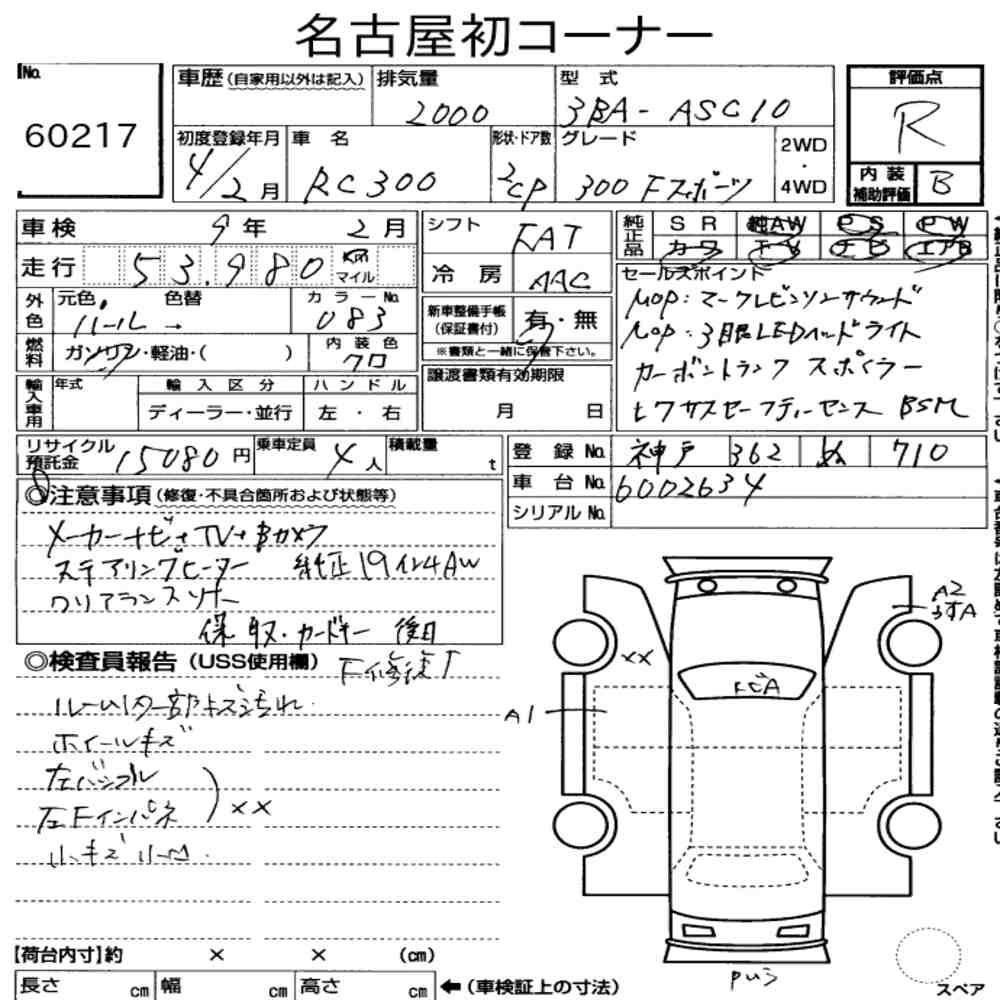 名古屋初コーナー
No.
60217
車歴(自家用以外は記入)
排気量
2000
型 式
3BA-ASC10
評価点
R
初度登録年月
4/2月
車 名
RC300
形状・ドア数
2CP
グレード
300 Fスポーツ
2WD
・
4WD
内装
補助評価
B
車検 9年 2月
走行 53,980 km マイル
外色
元色
パール
色替
→
カラーNo.
083
燃料
ガソリン・軽油・( )
内装色
クロ
輸入車用
年式
輸入区分
ディーラー・並行
ハンドル
左 ・ 右
シフト
FAT
冷房
AAC
新車整備手帳
(保証書付)
有・無
※書類と一緒に保管下さい。
譲渡書類有効期限
月 日
純正品
SR 純AW PS PW
カワ TV ナビ エアB
セールスポイント
MOP:マークレビンソンサウンド
MOP:3眼LEDヘッドライト
カーボントランクスポイラー
ヒーター BSM
リサイクル
預託金
15080円
乗車定員
4人
積載量
t
登録No.
神戸 362 ぬ 710
車台No.
6002634
シリアルNo.
◎注意事項(修復・不具合箇所および状態等)
メーカーナビ+TV+Bカメラ
ステアリングヒーター 純正19インチAW
クリアランスソナー
保、取、カードキー 後日
◎検査員報告(USS使用欄)
F修復
ルーム内一部キズ汚れ
ホイールキズ
左バンパー
左Fインパネ
)××
小キズ小凹
A2
うすA
××
トビA
A1
Puう
【荷台内寸】約 × × (cm)
長さ cm 幅 cm 高さ cm
←(車検証上の寸法)
スペア